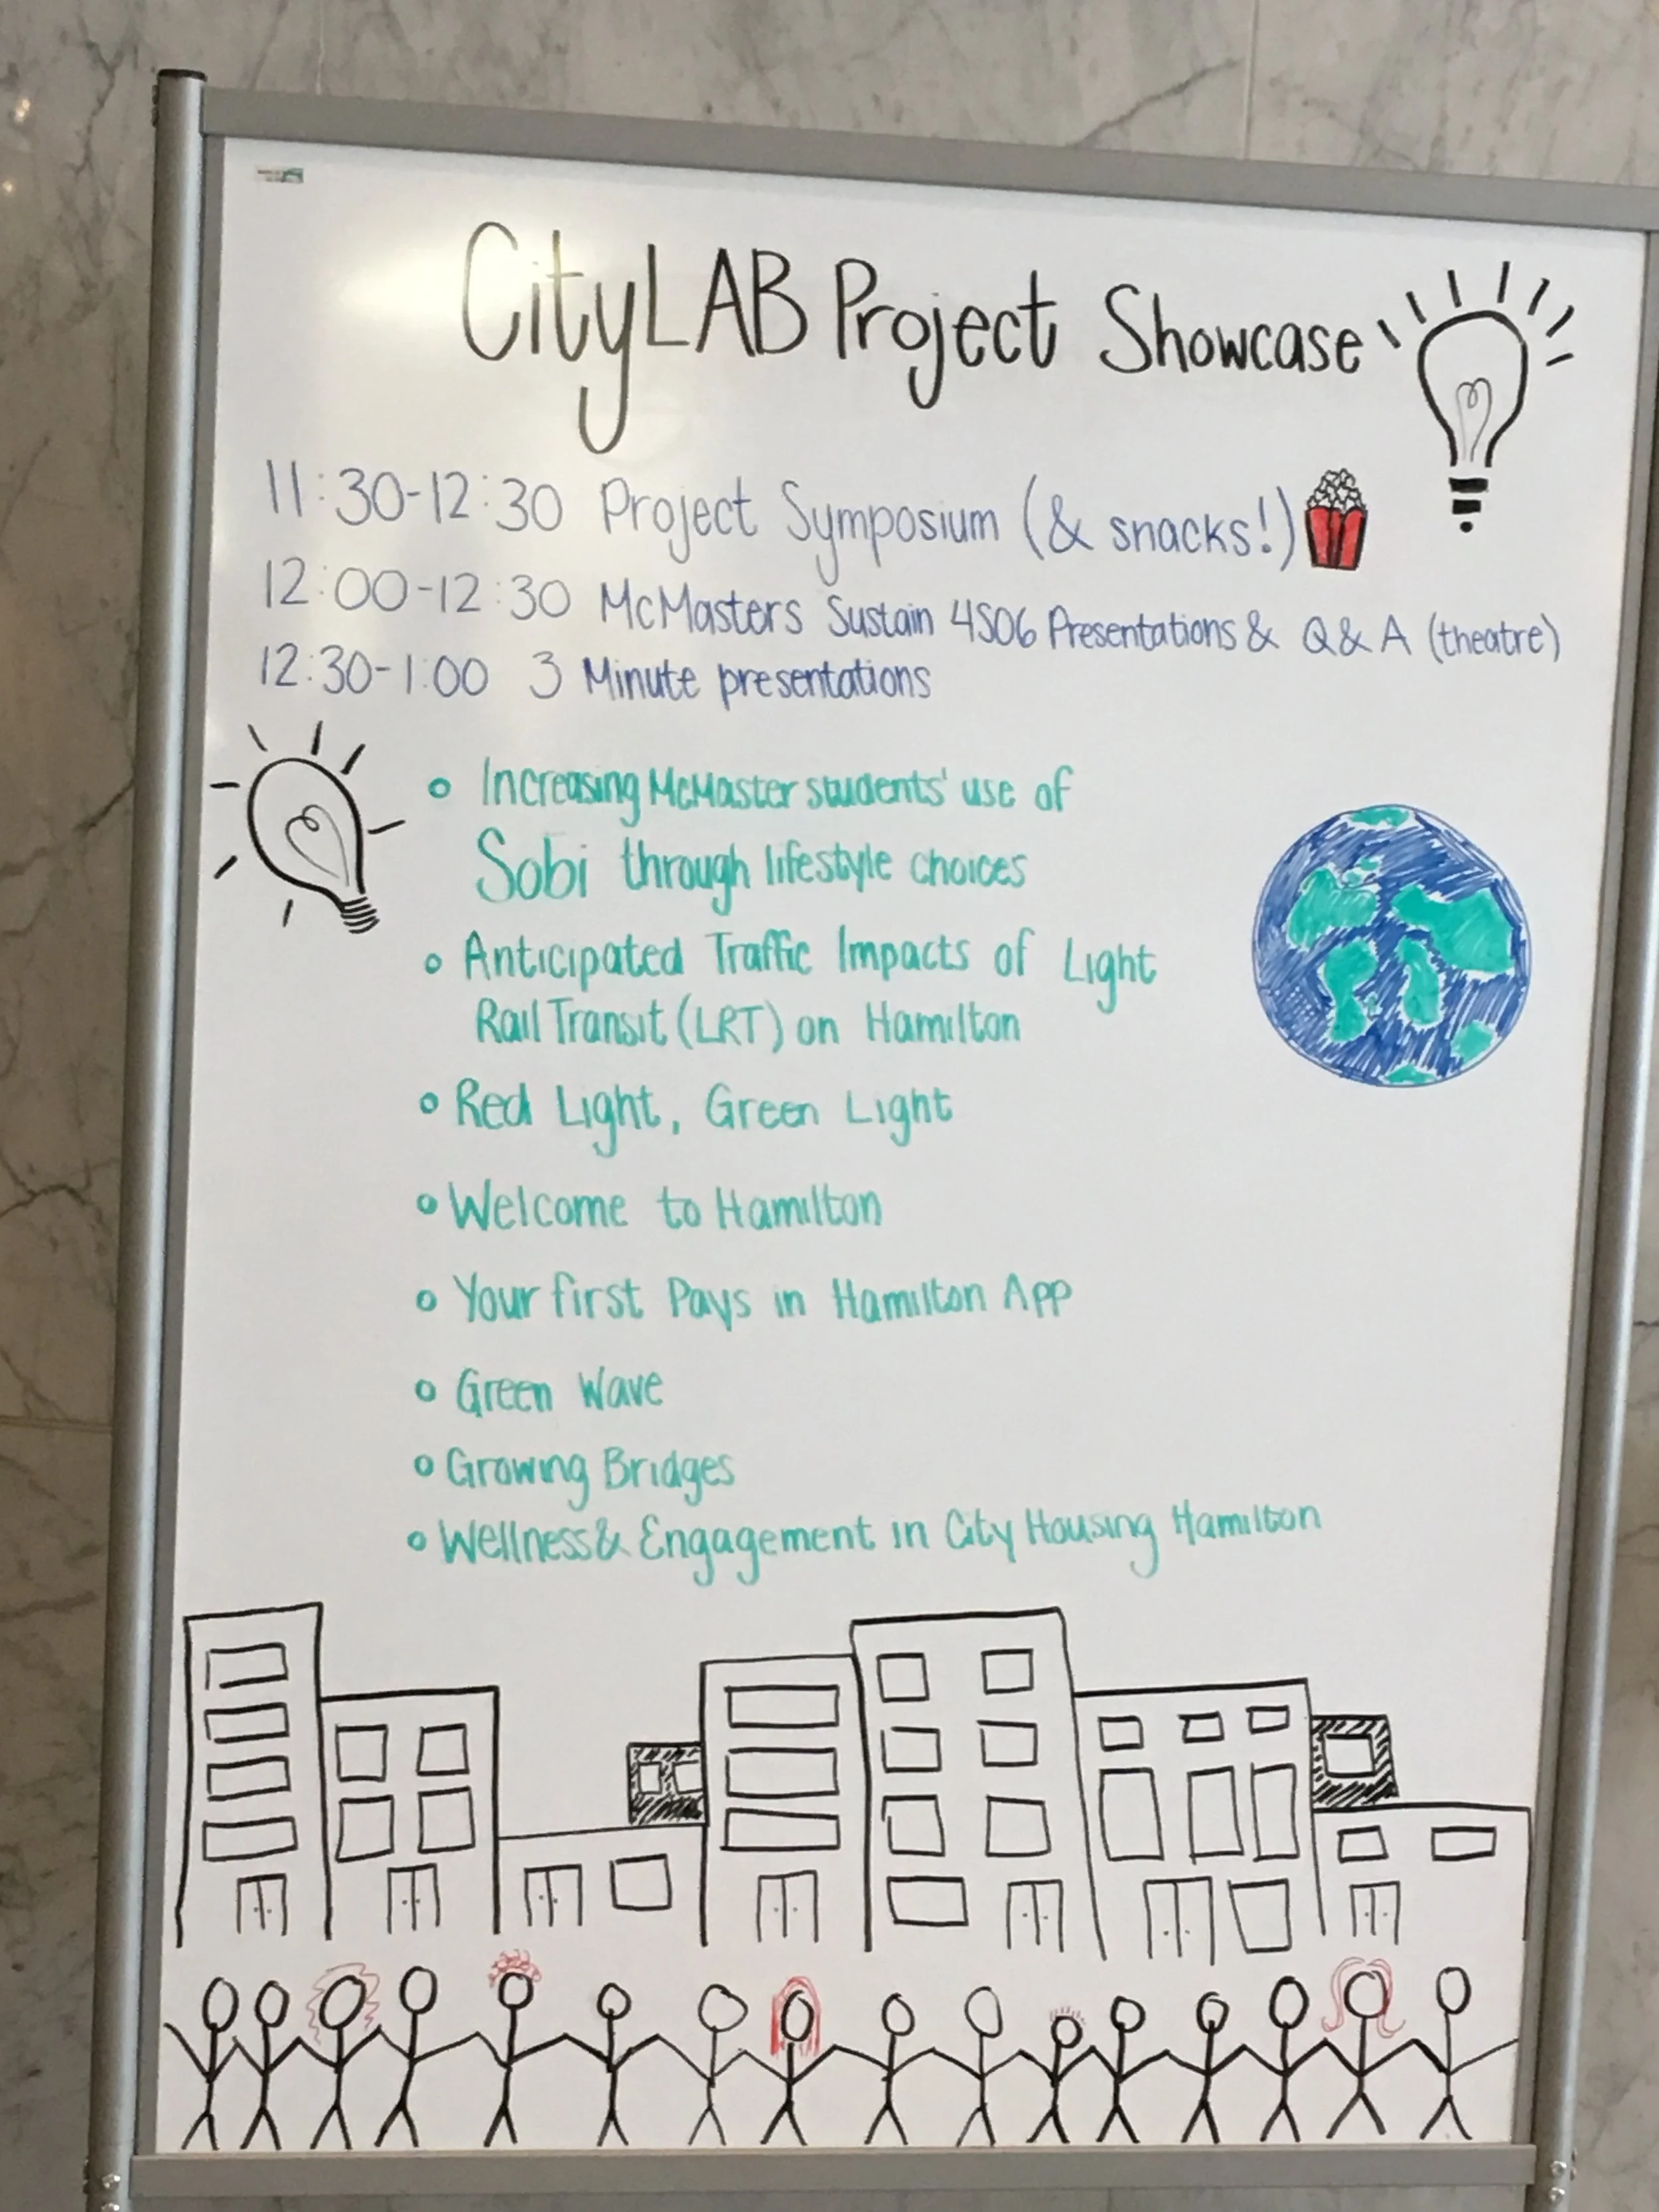 CityLAB Project Showcase
11:30-12:30 Project Symposium (& snacks!)
12:00-12:30 McMasters Sustain 4S06 Presentations & Q & A (theatre)
12:30-1:00 3 Minute presentations
Increasing McMaster students' use of
Sobi through lifestyle choices
Anticipated Traffic Impacts of Light
Rail Transit (LRT) on Hamilton
Red Light, Green Light
Welcome to Hamilton
Your first Pays in Hamilton App
Green Wave
Growing Bridges
Wellness & Engagement in City Housing Hamilton